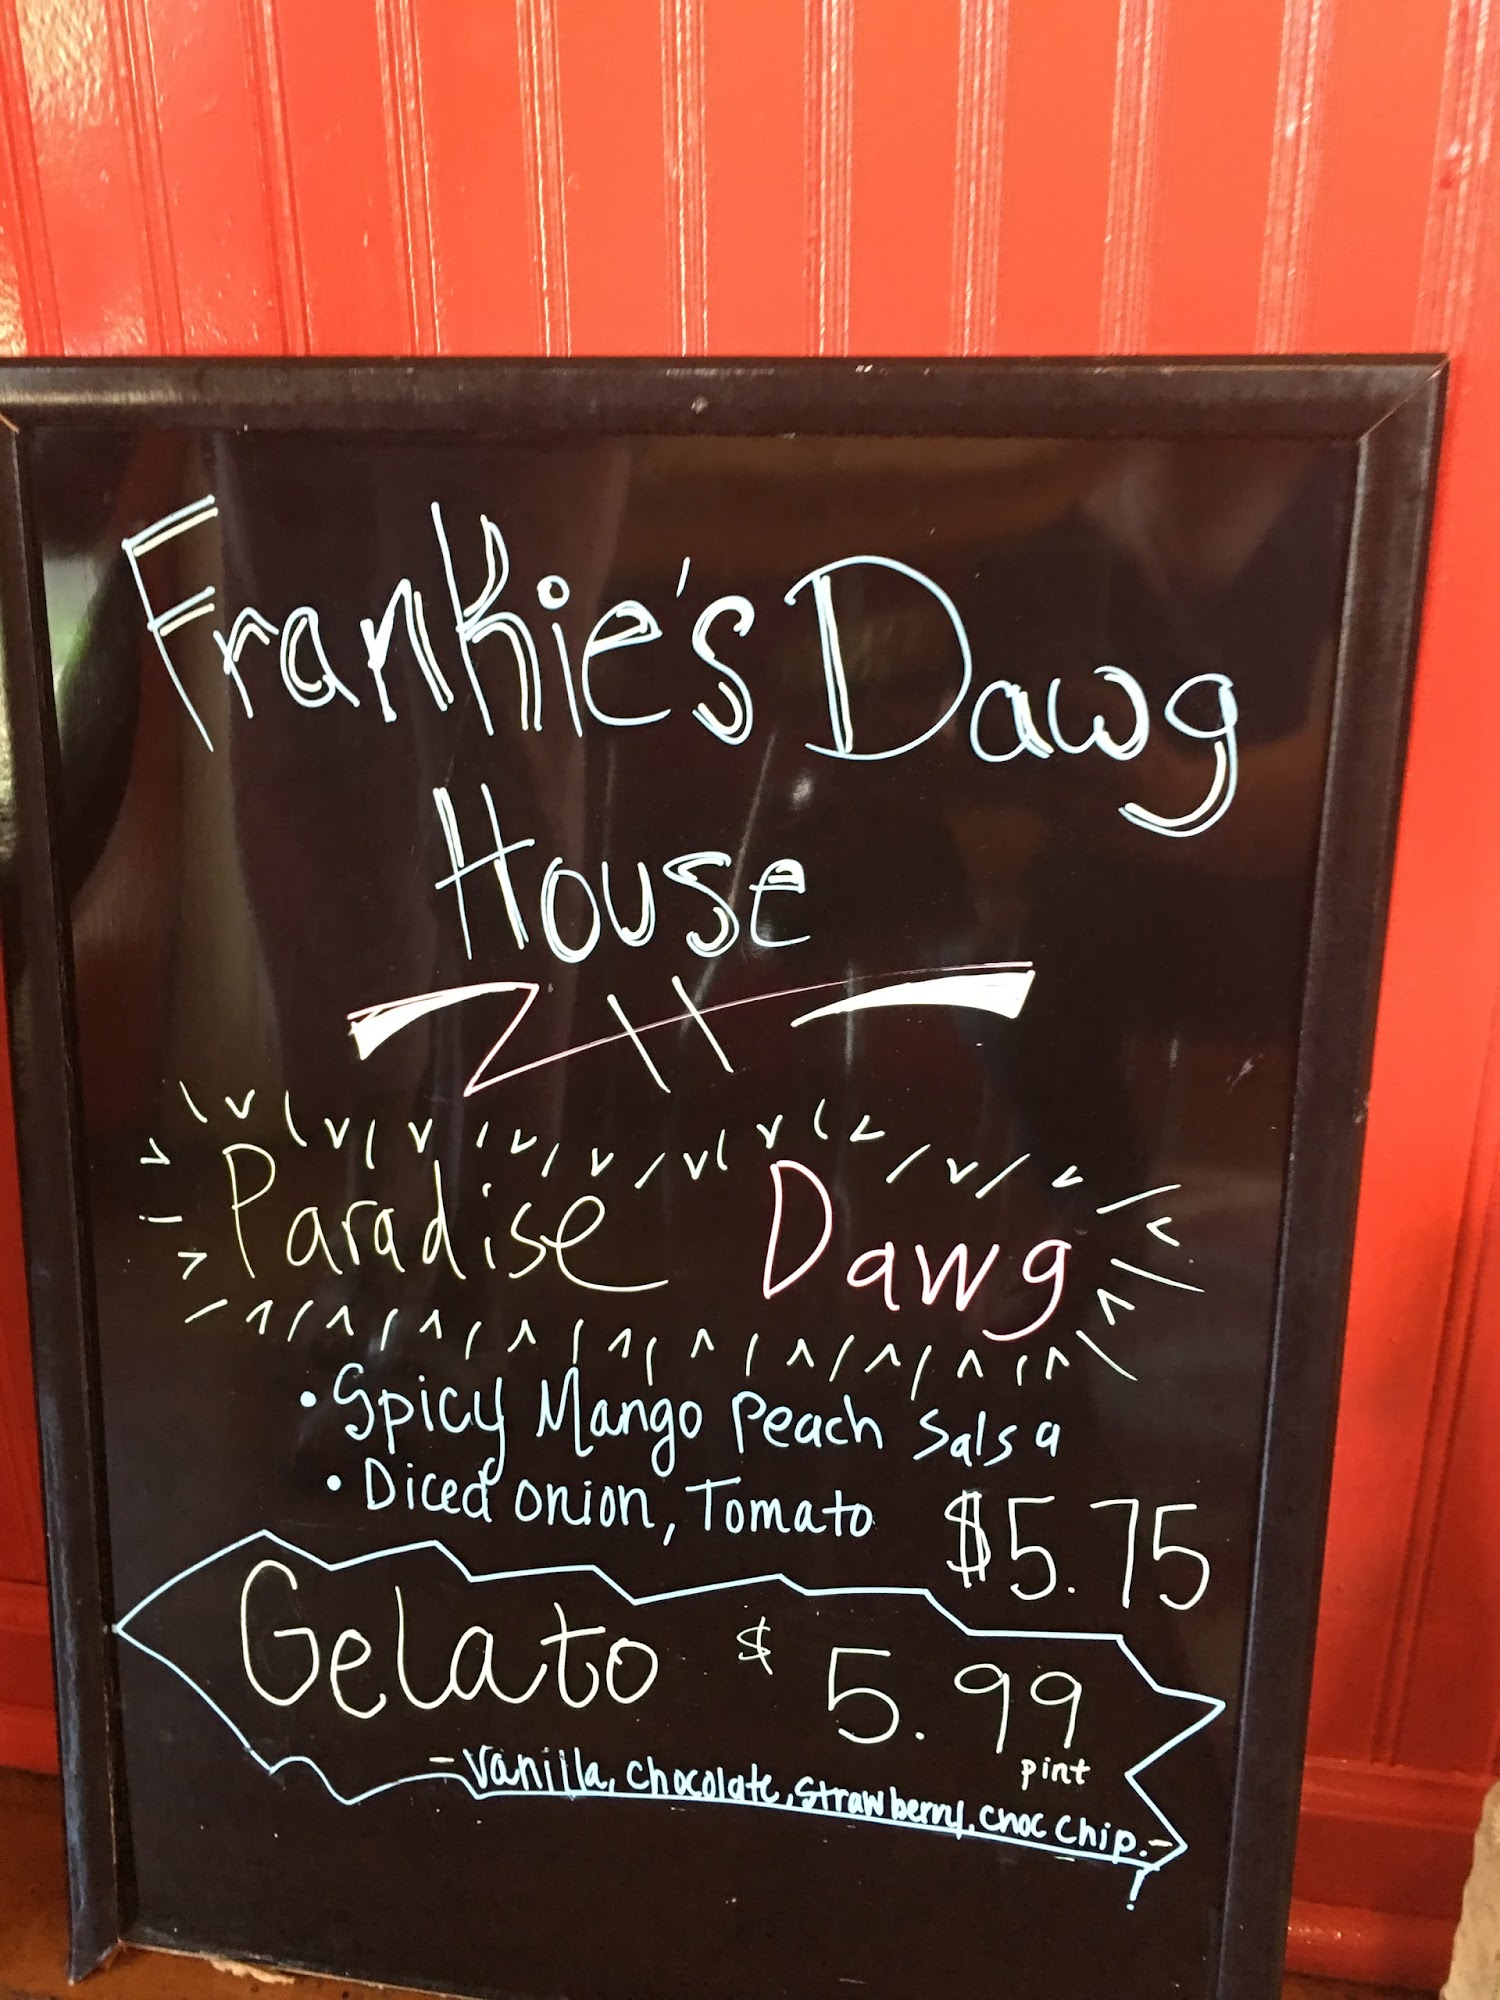 Frankie's Dawg
House
Paradise Dawg
• Spicy Mango Peach Salsa
• Diced onion, Tomato $5.75
Gelato $5.99
pint
- Vanilla, chocolate, strawberry, choc chip. -